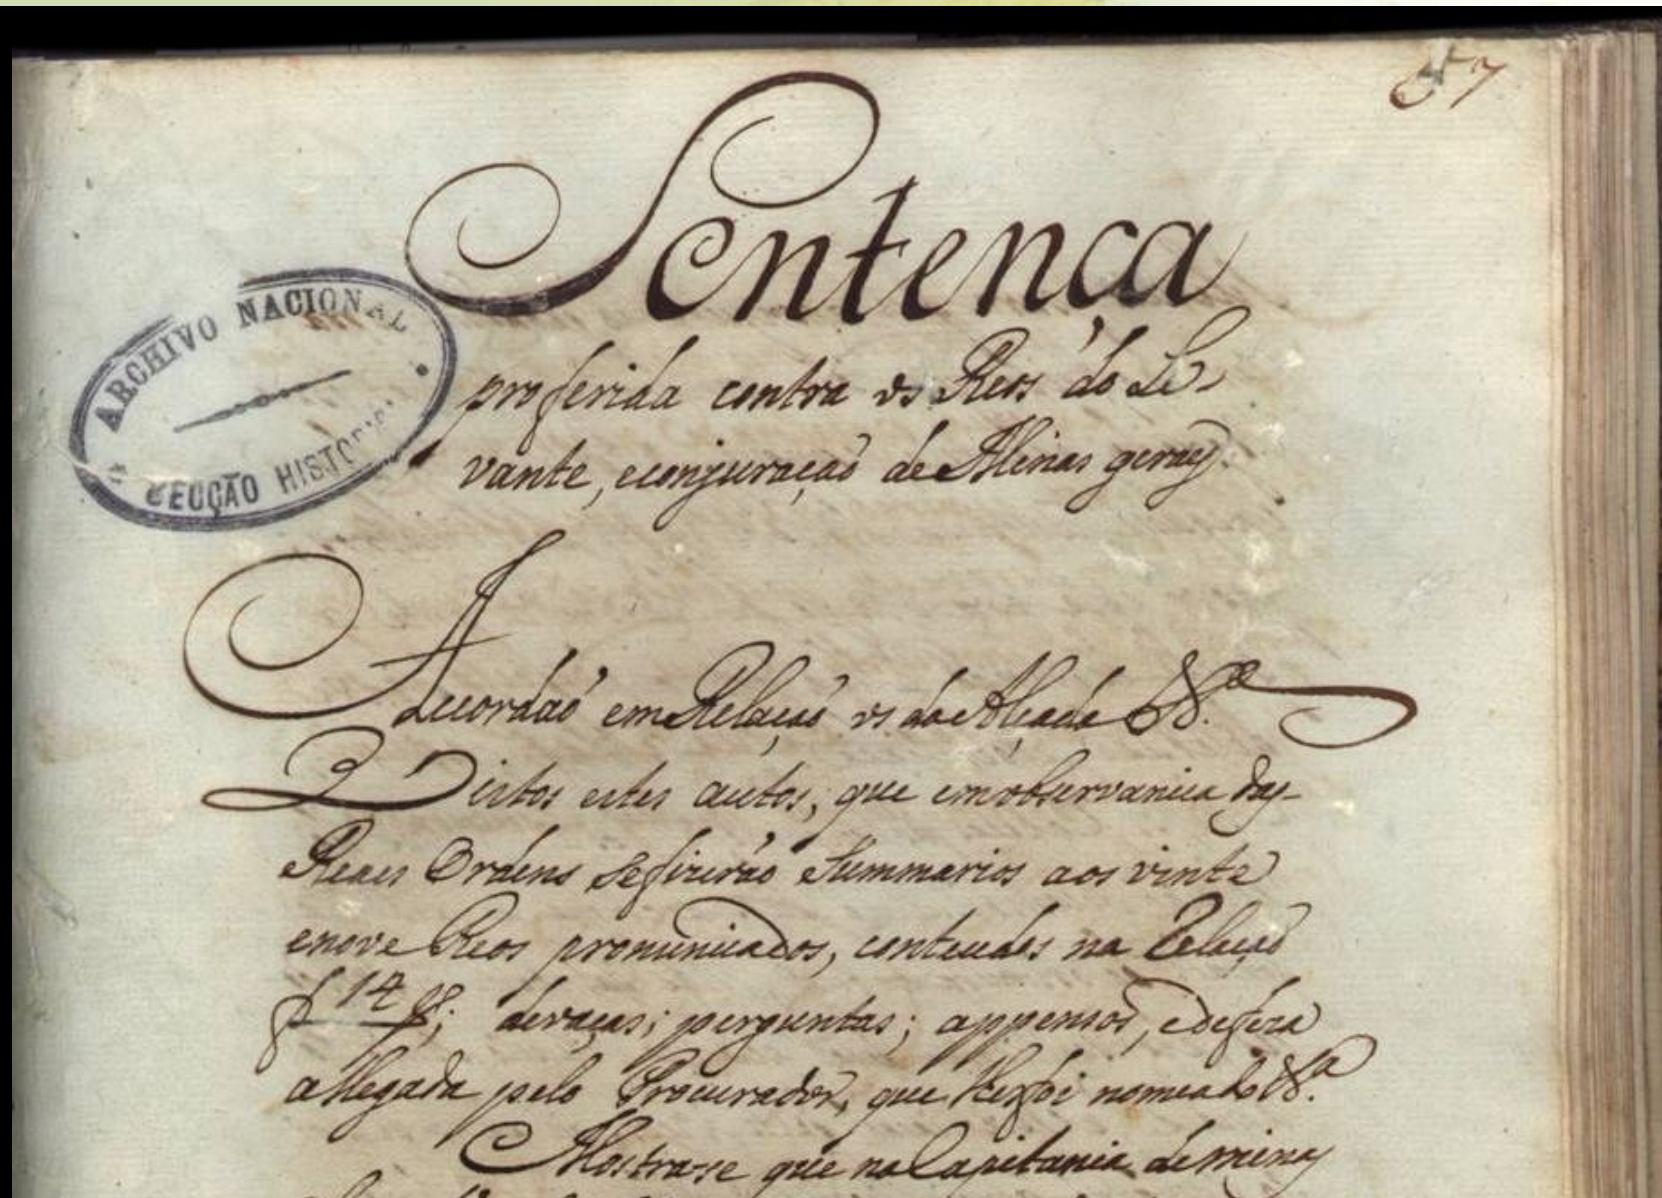 57
Sentença
ARCHIVO NACIONAL
SECÇÃO HISTORICA
proferida contra os Reos do Le-
vante, econjuração de Minas geraes.
Accordaõ em Relaçaõ os da Alçada &.ª
Vistos estes autos, que em observancia das
Reaes Ordens se fizeraõ Summarios aos vinte
enove Reos pronunciados, conteudos na Relaçaõ
f 14 devaças; perguntas; appensos, e defeza
allegada pelo Procurador, que lhes foi nomeado &.ª
Mostra-se que na Capitania de minas